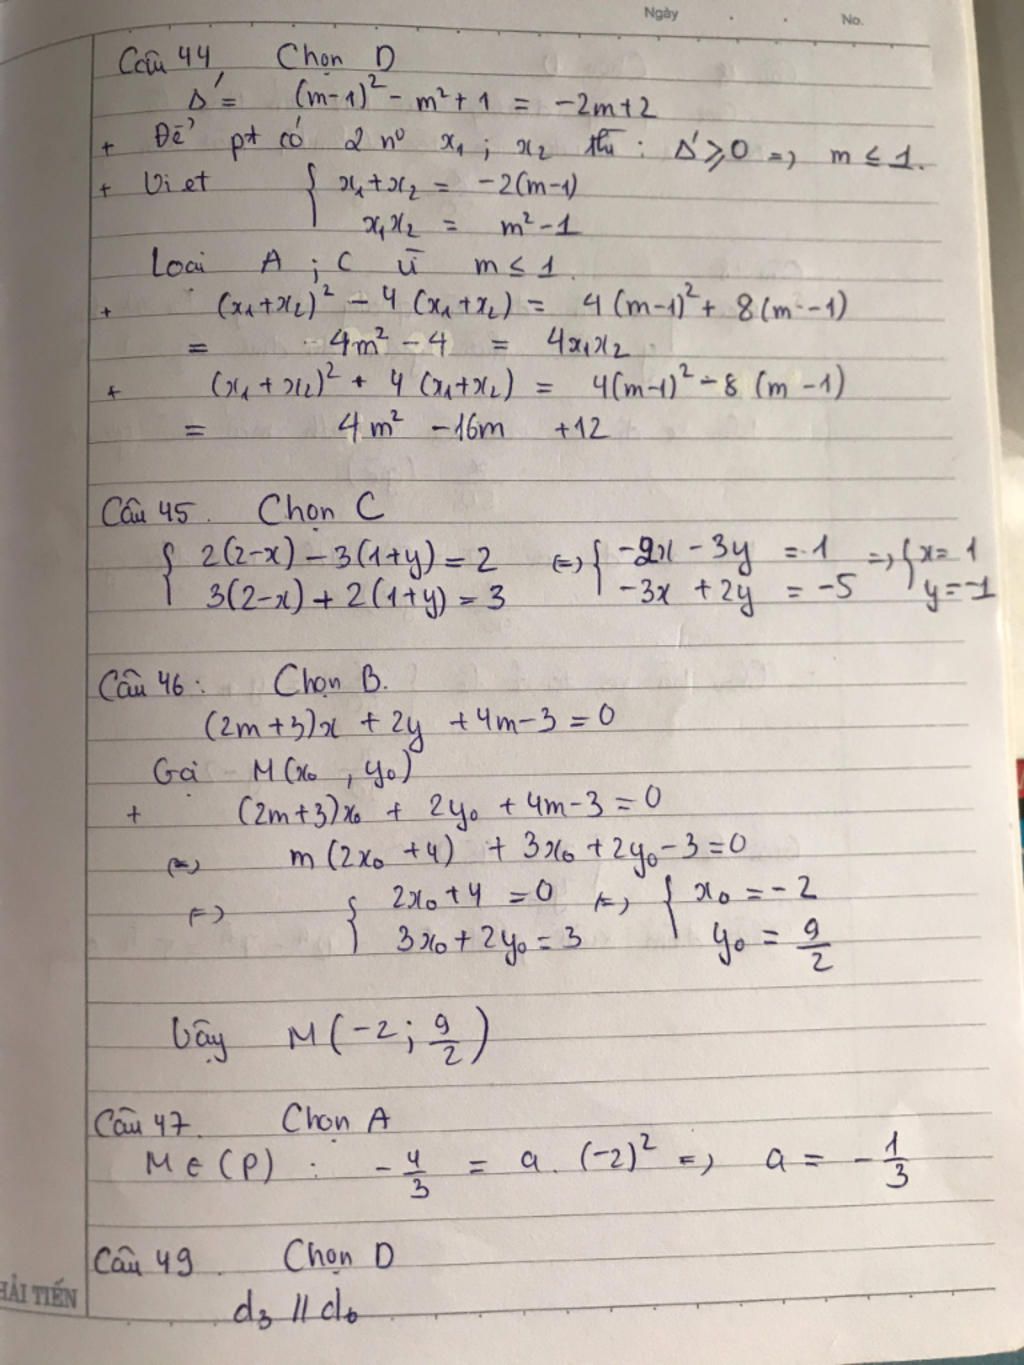 Ngày . . No.
Câu 44, Chọn D
Δ' = (m-1)² - m² + 1 = -2m+2
+ Để pt có 2 n⁰ x₁ ; x₂ thì : Δ' ≥ 0 => m ≤ 1.
+ Viet { x₁+x₂ = -2(m-1)
x₁x₂ = m² - 1
Loại A ; C vì m ≤ 1.
+ (x₁+x₂)² - 4 (x₁+x₂) = 4(m-1)² + 8(m-1)
= 4m² - 4 = 4x₁x₂
+ (x₁+x₂)² + 4 (x₁+x₂) = 4(m-1)² - 8 (m-1)
= 4m² - 16m + 12
Câu 45. Chọn C
{ 2(2-x) - 3(1+y) = 2 <=> { -2x - 3y = 1 => { x = 1
3(2-x) + 2(1+y) = 3 -3x + 2y = -5 y = -1
Câu 46: Chọn B.
(2m+3)x + 2y + 4m - 3 = 0
Gọi M(x₀, y₀)
+ (2m+3)x₀ + 2y₀ + 4m - 3 = 0
<=> m(2x₀ + 4) + 3x₀ + 2y₀ - 3 = 0
<=> { 2x₀ + 4 = 0 <=> { x₀ = -2
3x₀ + 2y₀ = 3 y₀ = 9/2
Vậy M(-2; 9/2)
Câu 47. Chọn A
M ∈ (P) : -4/3 = a. (-2)² => a = -1/3
Câu 49. Chọn D
HẢI TIẾN
d₃ // d₆